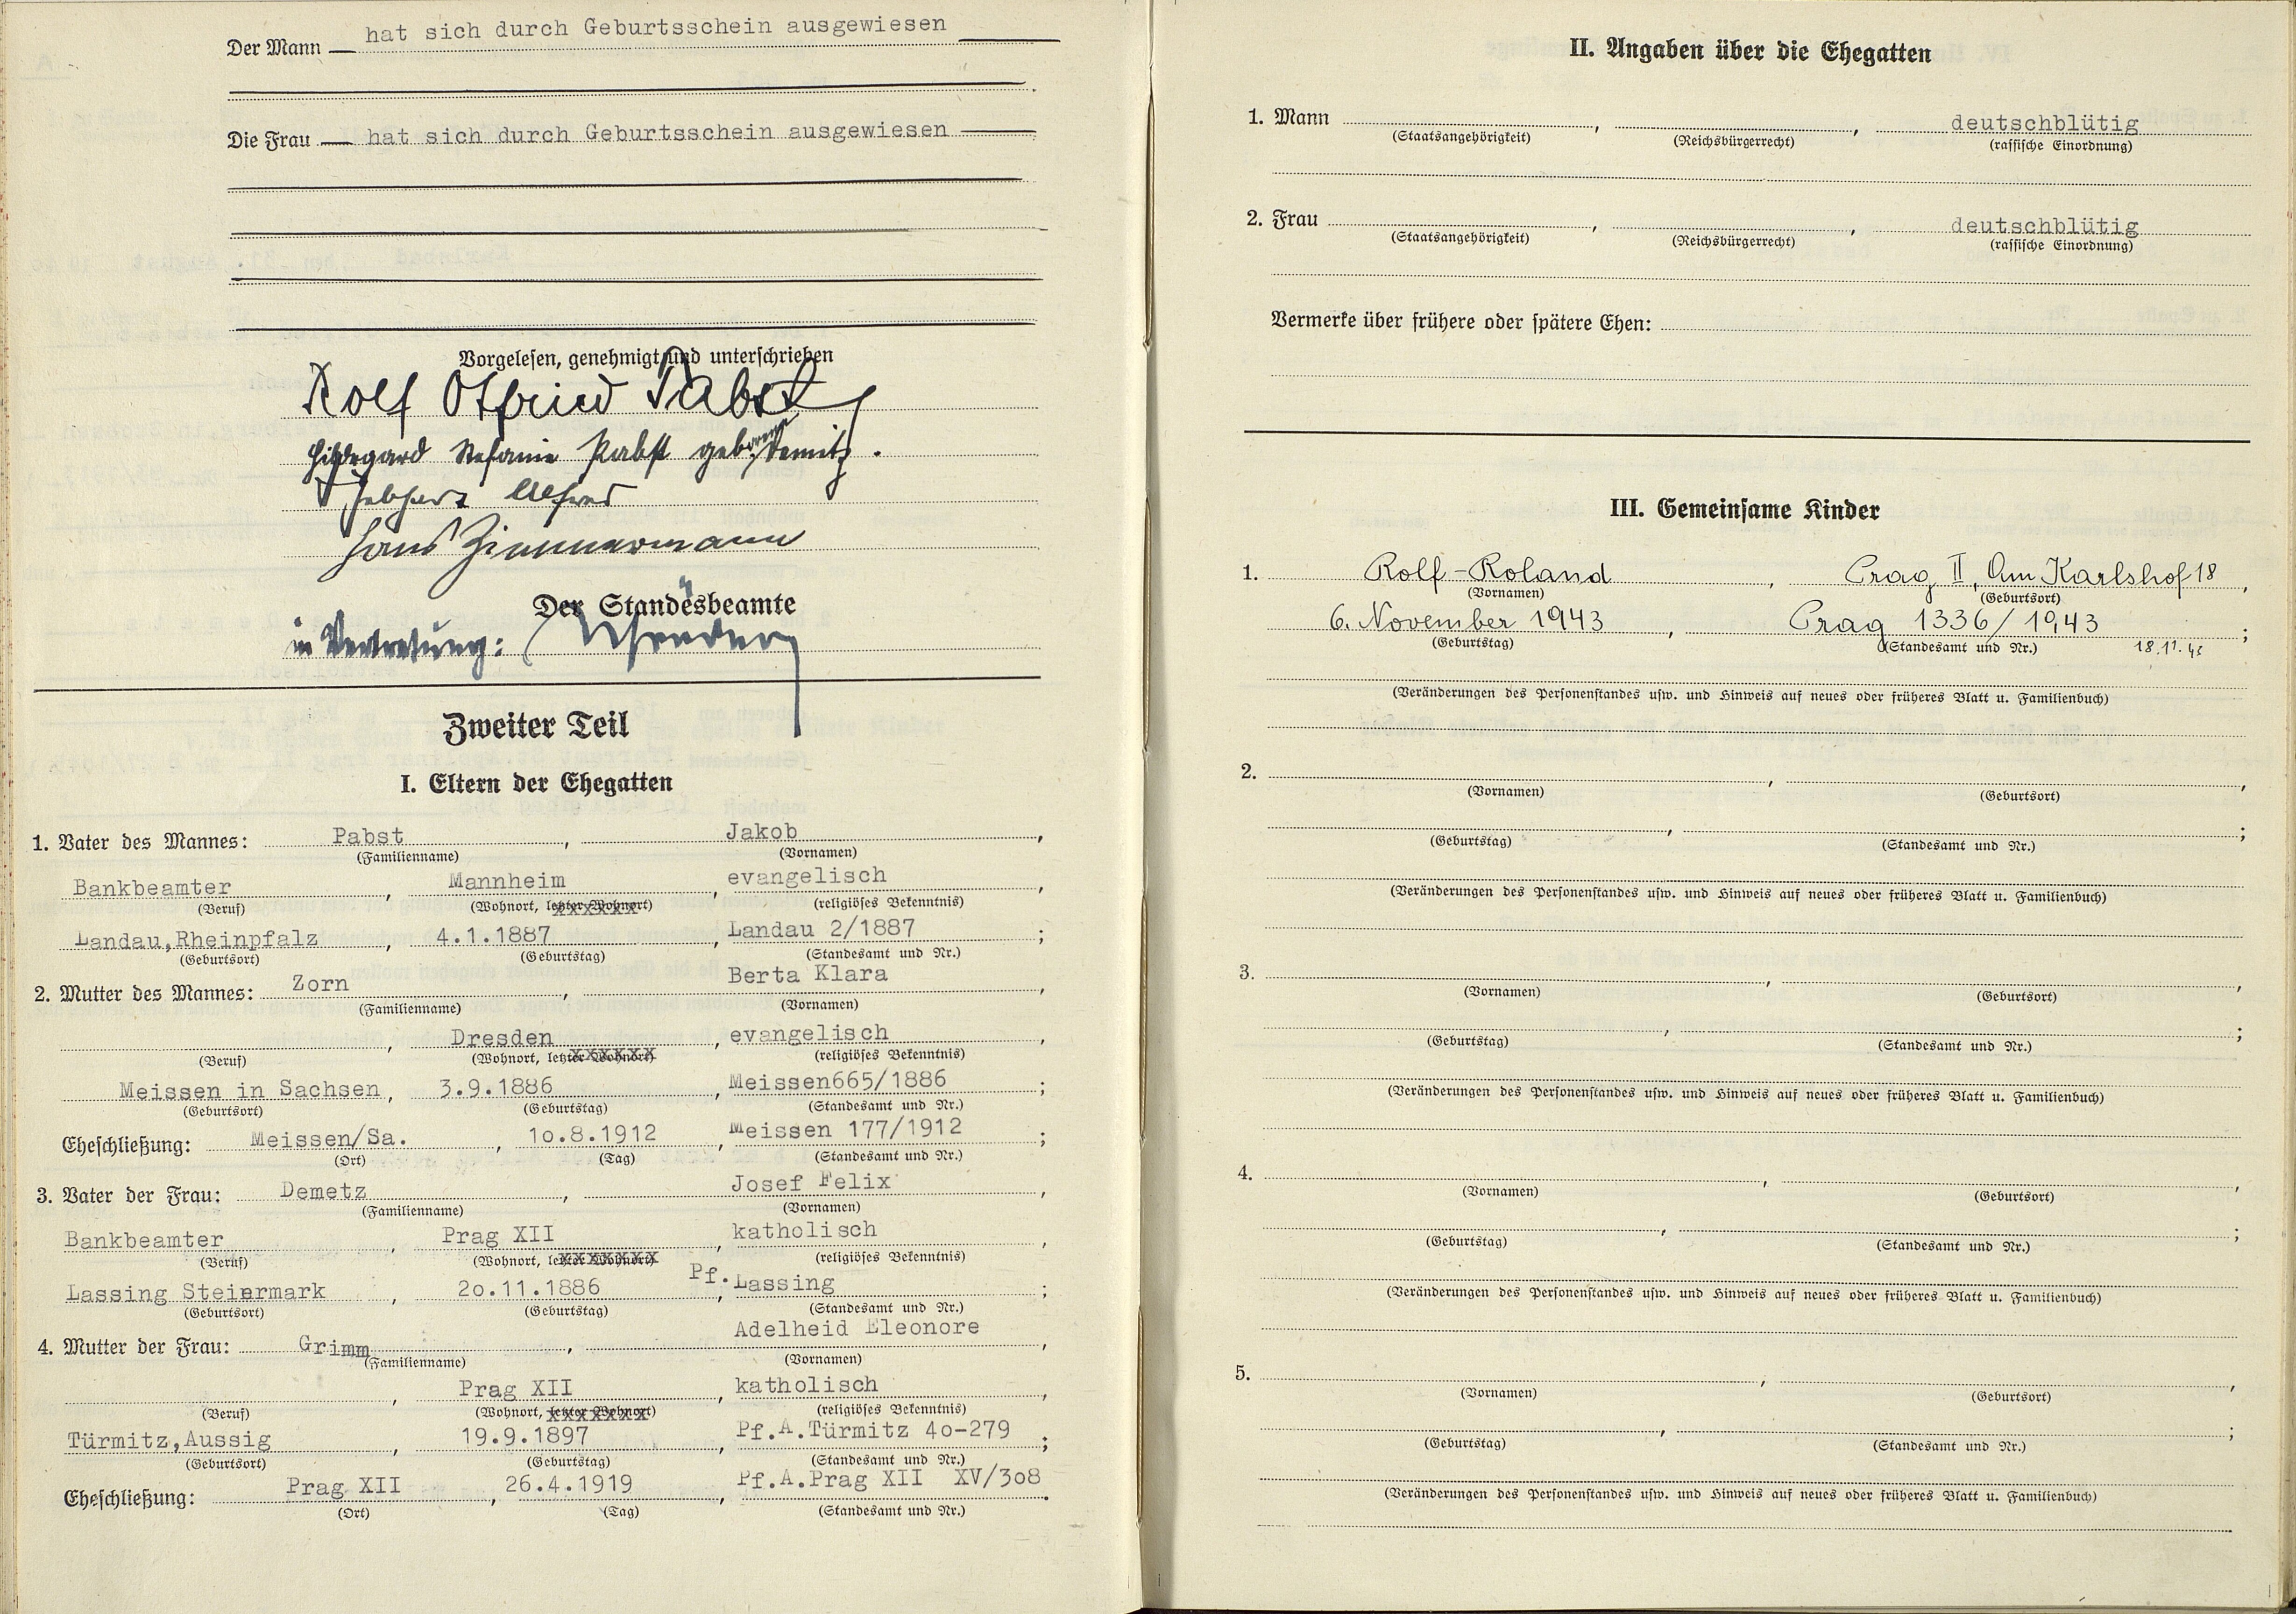 Der Mann — hat sich durch Geburtsschein ausgewiesen
Die Frau — hat sich durch Geburtsschein ausgewiesen
Vorgelesen, genehmigt und unterschrieben
Rolf Otfried Pabst
Hildegard Stefanie Pabst geborene Demetz.
Gebhart Alfred
Hans Zimmermann
Der Standesbeamte
in Vertretung:
Zweiter Teil
I. Eltern der Ehegatten
1. Vater des Mannes: Pabst, Jakob,
(Familienname) (Vornamen)
Bankbeamter, Mannheim, evangelisch,
(Beruf) (Wohnort, letzter Wohnort) (religiöses Bekenntnis)
Landau,Rheinpfalz, 4.1.1887, Landau 2/1887;
(Geburtsort) (Geburtstag) (Standesamt und Nr.)
2. Mutter des Mannes: Zorn, Berta Klara,
(Familienname) (Vornamen)
, Dresden, evangelisch,
(Beruf) (Wohnort, letzter Wohnort) (religiöses Bekenntnis)
Meissen in Sachsen, 3.9.1886, Meissen665/1886;
(Geburtsort) (Geburtstag) (Standesamt und Nr.)
Eheschließung: Meissen/Sa., 1o.8.1912, Meissen 177/1912;
(Ort) (Tag) (Standesamt und Nr.)
3. Vater der Frau: Demetz, Josef Felix,
(Familienname) (Vornamen)
Bankbeamter, Prag XII, katholisch,
(Beruf) (Wohnort, letzter Wohnort) (religiöses Bekenntnis)
Lassing Steiermark, 2o.11.1886, Pf. Lassing;
(Geburtsort) (Geburtstag) (Standesamt und Nr.)
4. Mutter der Frau: Grimm, Adelheid Eleonore,
(Familienname) (Vornamen)
, Prag XII, katholisch,
(Beruf) (Wohnort, letzter Wohnort) (religiöses Bekenntnis)
Türmitz,Aussig, 19.9.1897, Pf.A.Türmitz 4o-279;
(Geburtsort) (Geburtstag) (Standesamt und Nr.)
Eheschließung: Prag XII, 26.4.1919, Pf.A.Prag XII XV/3o8.
(Ort) (Tag) (Standesamt und Nr.)
II. Angaben über die Ehegatten
1. Mann , , deutschblütig
(Staatsangehörigkeit) (Reichsbürgerrecht) (rassische Einordnung)
2. Frau , , deutschblütig
(Staatsangehörigkeit) (Reichsbürgerrecht) (rassische Einordnung)
Vermerke über frühere oder spätere Ehen:
III. Gemeinsame Kinder
1. Rolf-Roland, Prag II, Am Karlshof 18,
(Vornamen) (Geburtsort)
6. November 1943, Prag 1336/1943;
(Geburtstag) (Standesamt und Nr.) 18.11.43
(Veränderungen des Personenstandes usw. und Hinweis auf neues oder früheres Blatt u. Familienbuch)
2. , ,
(Vornamen) (Geburtsort)
, ;
(Geburtstag) (Standesamt und Nr.)
(Veränderungen des Personenstandes usw. und Hinweis auf neues oder früheres Blatt u. Familienbuch)
3. , ,
(Vornamen) (Geburtsort)
, ;
(Geburtstag) (Standesamt und Nr.)
(Veränderungen des Personenstandes usw. und Hinweis auf neues oder früheres Blatt u. Familienbuch)
4. , ,
(Vornamen) (Geburtsort)
, ;
(Geburtstag) (Standesamt und Nr.)
(Veränderungen des Personenstandes usw. und Hinweis auf neues oder früheres Blatt u. Familienbuch)
5. , ,
(Vornamen) (Geburtsort)
, ;
(Geburtstag) (Standesamt und Nr.)
(Veränderungen des Personenstandes usw. und Hinweis auf neues oder früheres Blatt u. Familienbuch)